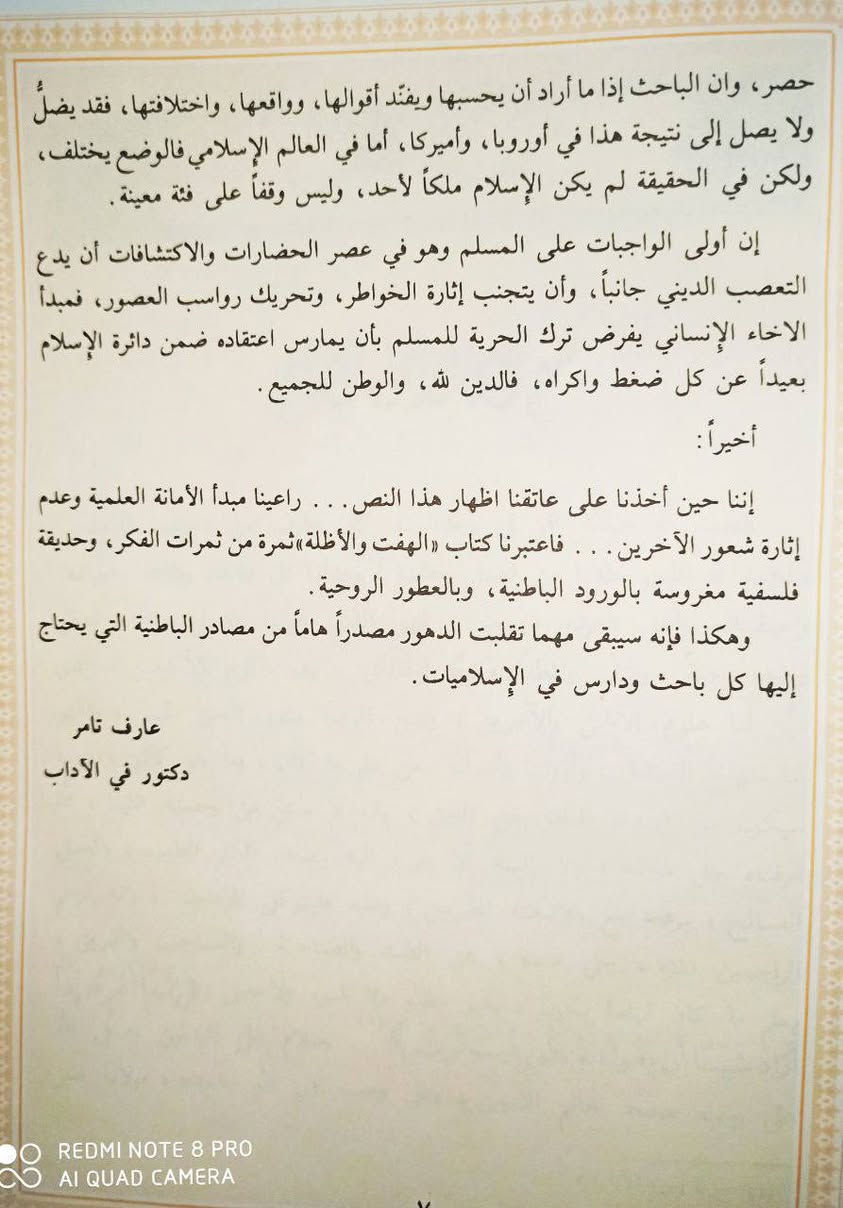 حصر، وان الباحث إذا ما أراد أن يحسبها ويفنّد أقوالها، وواقعها، واختلافتها، فقد يضلُّ
ولا يصل إلى نتيجة هذا في أوروبا، وأميركا، أما في العالم الإسلامي فالوضع يختلف،
ولكن في الحقيقة لم يكن الإسلام ملكاً لأحد، وليس وقفاً على فئة معينة.
إن أولى الواجبات على المسلم وهو في عصر الحضارات والاكتشافات أن يدع
التعصب الديني جانباً، وأن يتجنب إثارة الخواطر، وتحريك رواسب العصور، فمبدأ
الاخاء الإنساني يفرض ترك الحرية للمسلم بأن يمارس اعتقاده ضمن دائرة الإسلام
بعيداً عن كل ضغط واكراه، فالدين لله، والوطن للجميع.
أخيراً:
إننا حين أخذنا على عاتقنا اظهار هذا النص... راعينا مبدأ الأمانة العلمية وعدم
إثارة شعور الآخرين... فاعتبرنا كتاب «الهفت والأظلة» ثمرة من ثمرات الفكر، وحديقة
فلسفية مغروسة بالورود الباطنية، وبالعطور الروحية.
وهكذا فإنه سيبقى مهما تقلبت الدهور مصدراً هاماً من مصادر الباطنية التي يحتاج
إليها كل باحث ودارس في الإسلاميات.
عارف تامر
دكتور في الآداب
REDMI NOTE 8 PRO
AI QUAD CAMERA
٧